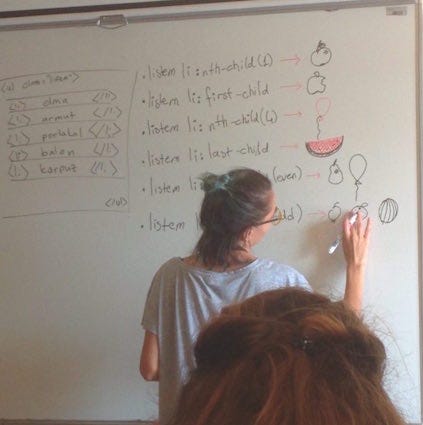 <ul class="listem">
<li> elma </li>
<li> armut </li>
<li> portakal </li>
<li> balon </li>
<li> karpuz </li>
</ul>
.listem li:nth-child(1)
.listem li:first-child
.listem li:nth-child(4)
.listem li:last-child
.listem li: (even)
.listem